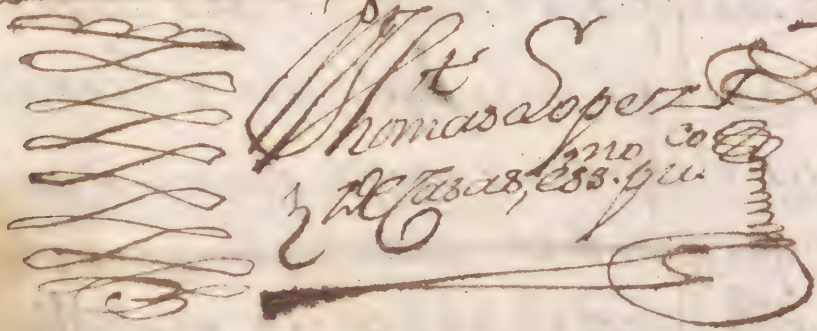 Thomas Lopez
De Casas, ess.no pu.co